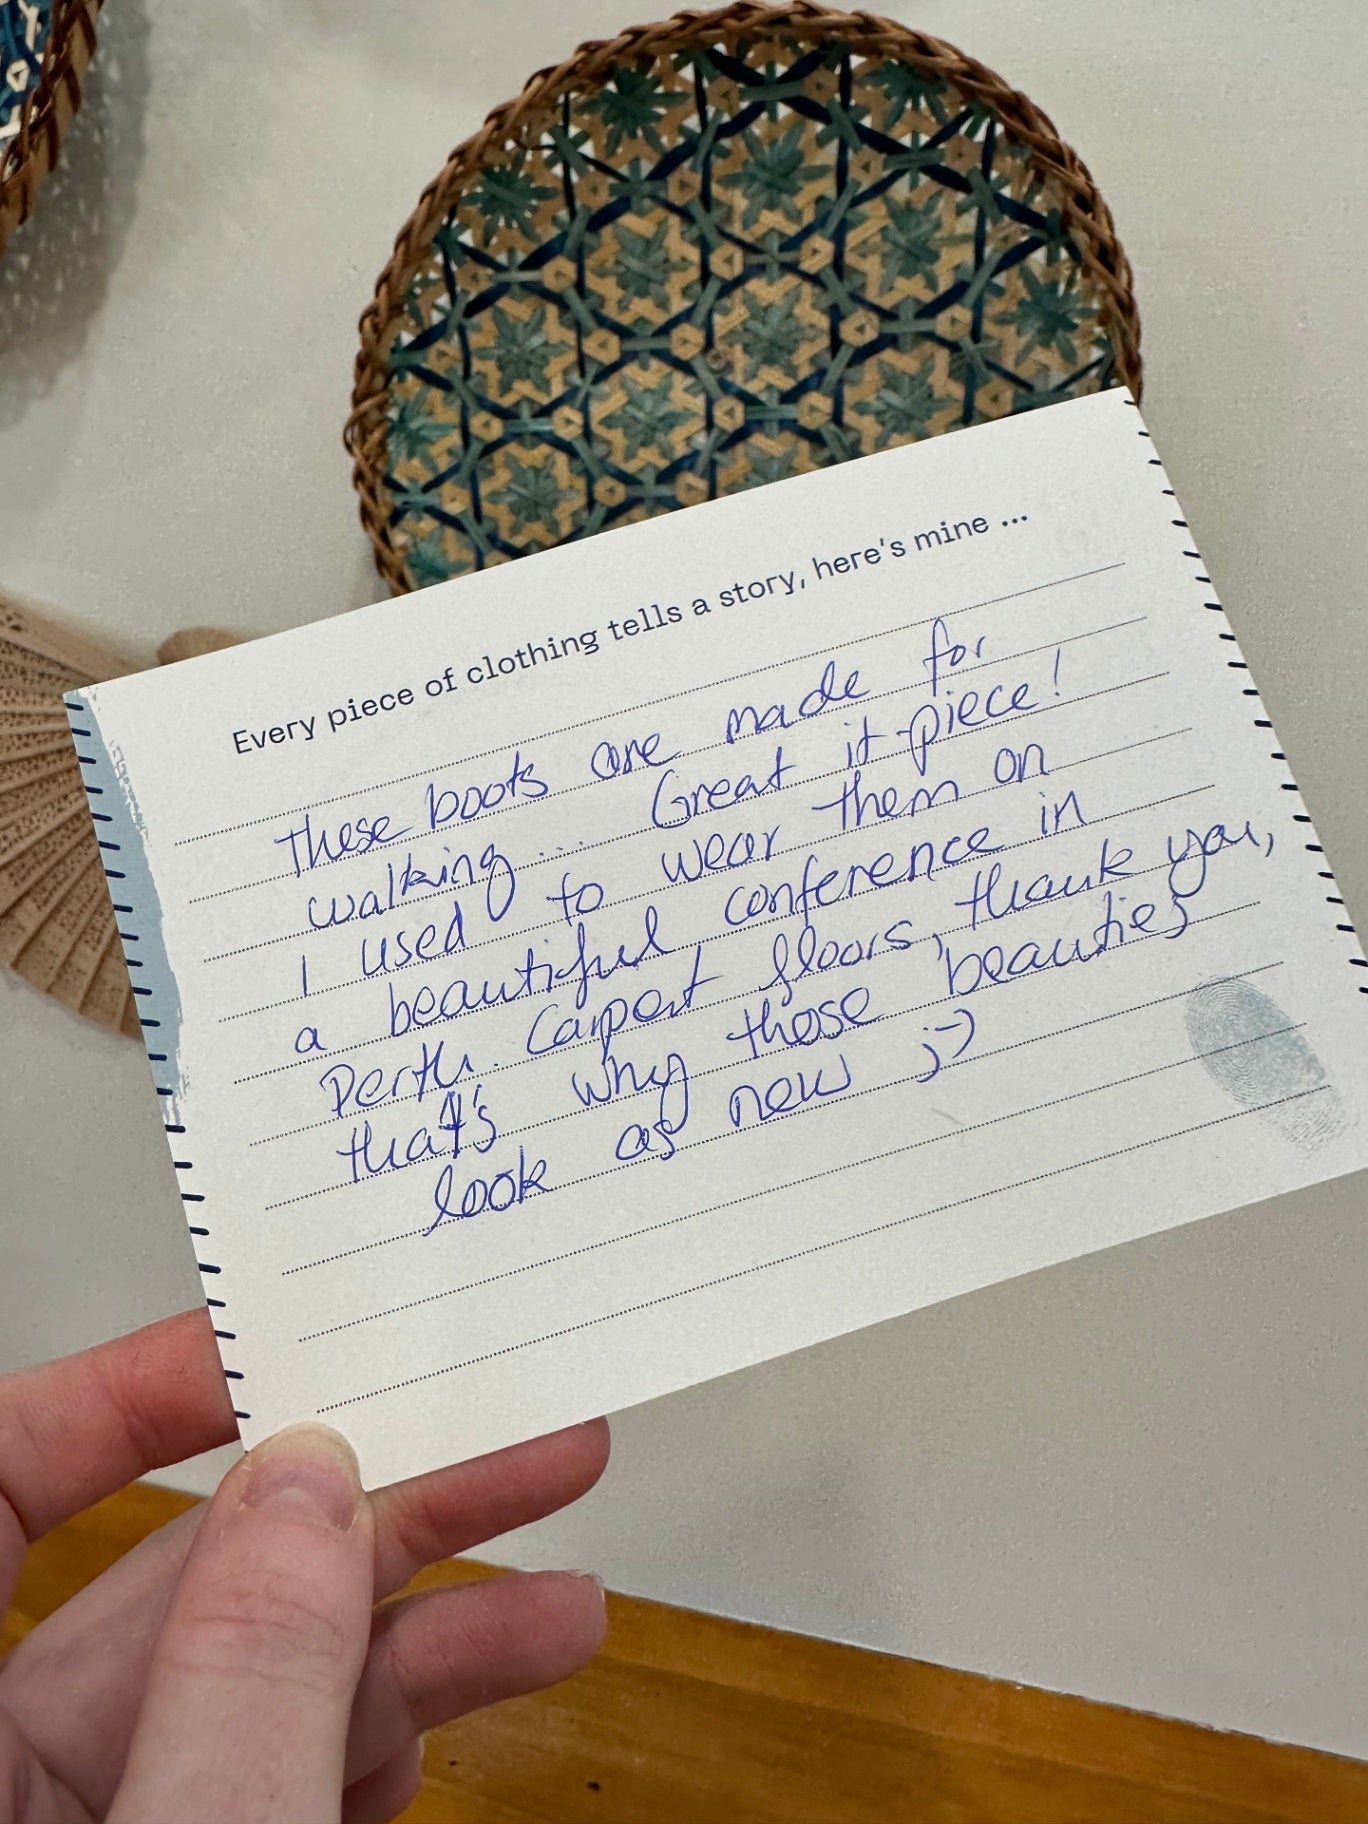 Every piece of clothing tells a story, here's mine ...
these boots are made for
walking ... Great it-piece!
I used to wear them on
a beautiful conference in
Perth. Carpert floors, thank you,
that's why those beauties
look as new ;-)